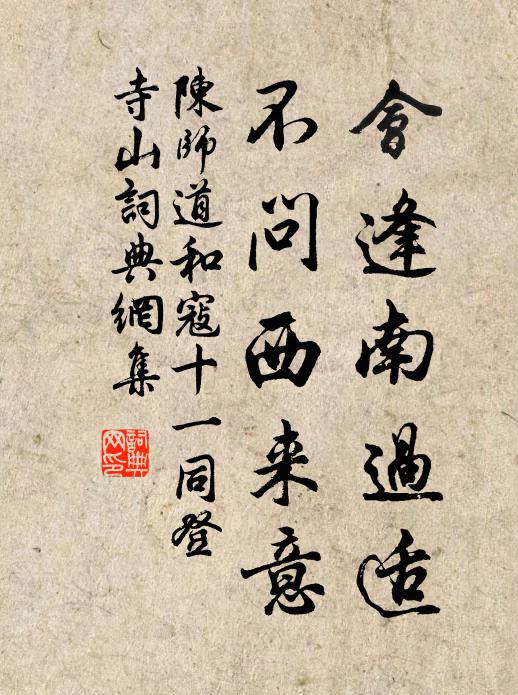 會逢南過适
不問西来意
陳師道和寇十一同登
寺山詞典網集
詞典网印